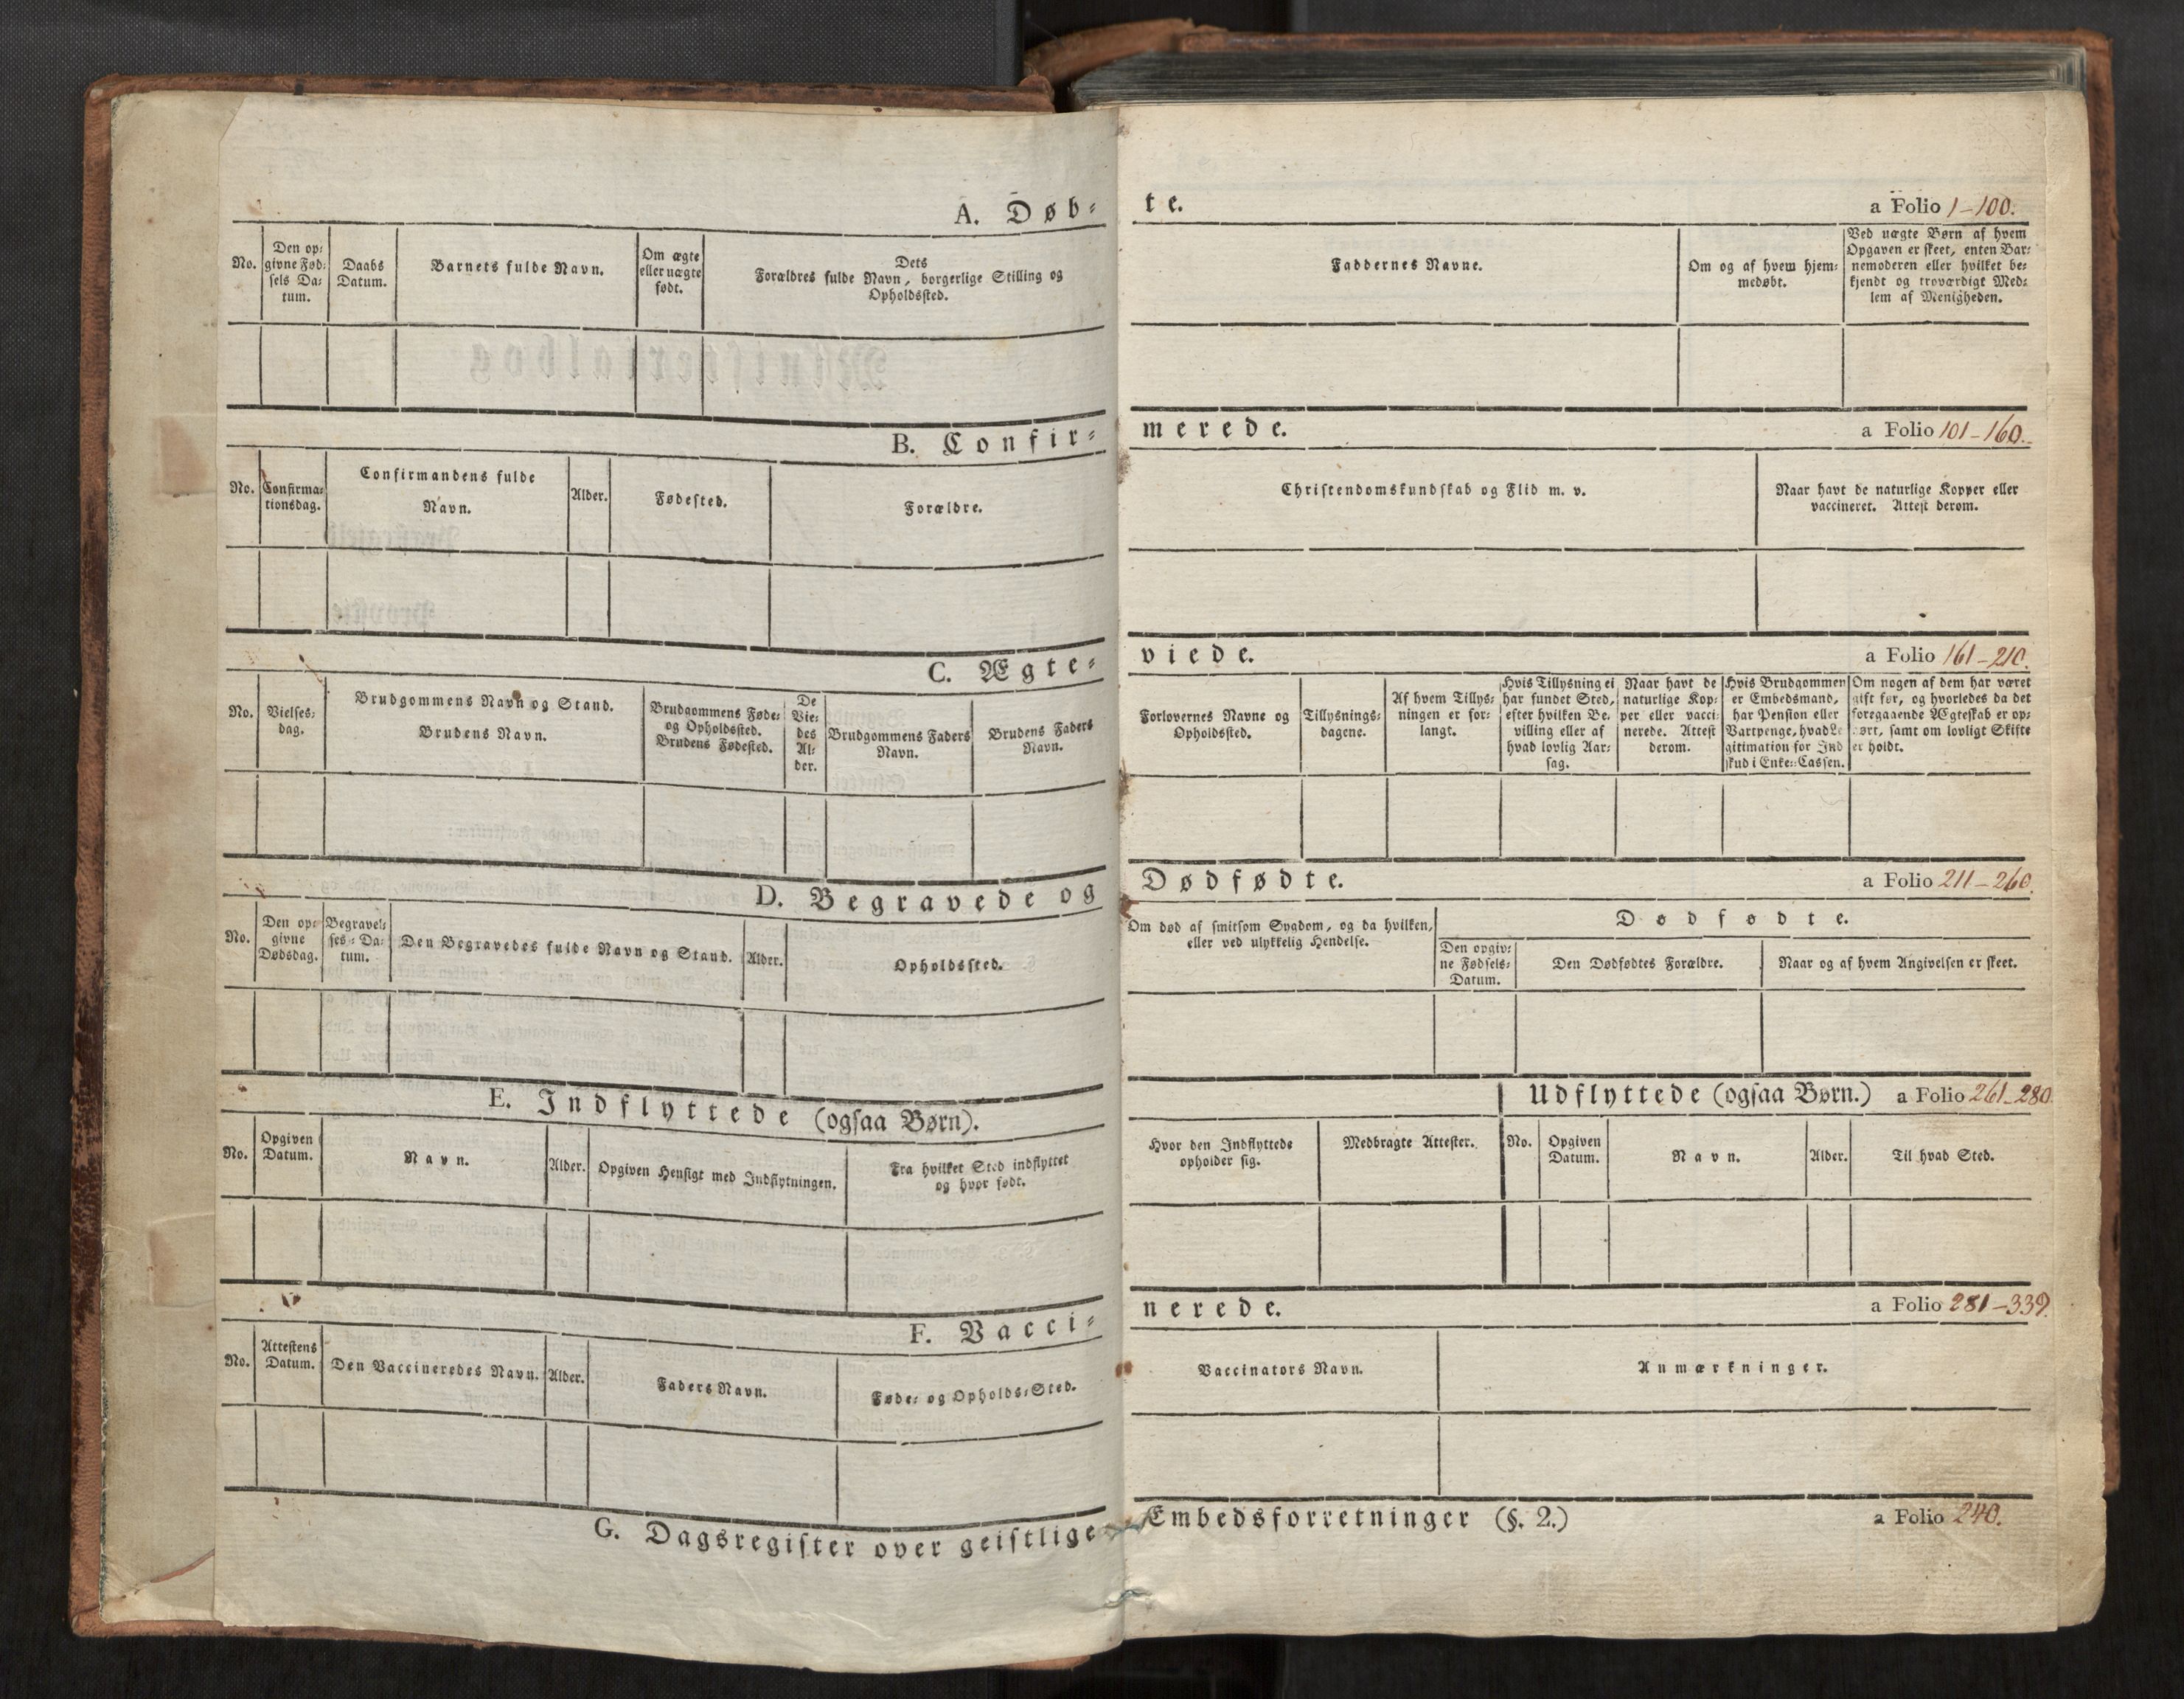 A. Døb-
No.
Den op-
givne Fød-
sels Da-
tum.
Daabs
Datum.
Barnets fulde Navn.
Om ægte
eller uægte
født.
Dets
Forældres fulde Navn, borgerlige Stilling og
Opholdssted.
B. Confir-
No.
Confirma-
tionsdag.
Confirmandens fulde
Navn.
Alder.
Fødested.
Forældre.
C. Ægte-
No.
Vielses-
dag.
Brudgommens Navn og Stand.
Brudens Navn.
Brudgommens Føde-
og Opholdssted.
Brudens Fødested.
De
Vie-
des
Al-
der.
Brudgommens Faders
Navn.
Brudens Faders
Navn.
D. Begravede og
No.
Den op-
givne
Dødsdag.
Begravel-
ses-Da-
tum.
Den Begravedes fulde Navn og Stand.
Alder.
Opholdssted.
E. Indflyttede (ogsaa Børn).
No.
Opgiven
Datum.
Navn.
Alder.
Opgiven Hensigt med Indflytningen.
Fra hvilket Sted indflyttet
og hvor født.
F. Vacci-
No.
Attestens
Datum.
Den Vaccineredes Navn.
Alder.
Faders Navn.
Føde- og Opholds-Sted.
G. Dagsregister over geistlige
te.
a Folio 1-100.
Faddernes Navne.
Om og af hvem hjem-
medøbt.
Ved uægte Børn af hvem
Opgaven er skeet, enten Bar-
nemoderen eller hvilket be-
kjendt og troværdigt Med-
lem af Menigheden.
merede.
a Folio 101-160.
Christendomskundskab og Flid m. v.
Naar havt de naturlige Kopper eller
vaccineret. Attest derom.
viede.
a Folio 161-210.
Forlovernes Navne og
Opholdssted.
Tillysnings-
dagene.
Af hvem Tillys-
ningen er for-
langt.
Hvis Tillysning ei
har fundet Sted,
efter hvilken Be-
villing eller af
hvad lovlig Aar-
sag.
Naar havt de
naturlige Kop-
per eller vacci-
nerede. Attest
derom.
Hvis Brudgommen
er Embedsmand,
har Pension eller
Vartpenge, hvad Le
gitimation for Ind
skud i Enke-Cassen.
Om nogen af dem har været
gift før, og hvorledes da det
foregaaende Ægteskab er op-
hørt, samt om lovligt Skifte
er holdt.
Dødfødte.
a Folio 211-260.
Om død af smitsom Sygdom, og da hvilken,
eller ved ulykkelig Hendelse.
Dødfødte.
Den opgiv-
ne Fødsels-
Datum.
Den Dødfødtes Forældre.
Naar og af hvem Angivelsen er skeet.
Udflyttede (ogsaa Børn.) a Folio 261-280
Hvor den Indflyttede
opholder sig.
Medbragte Attester.
No.
Opgiven
Datum.
Navn.
Alder.
Til hvad Sted.
nerede.
a Folio 281-339.
Vaccinators Navn.
Anmærkninger.
Embedsforretninger (§. 2.)
a Folio 240.